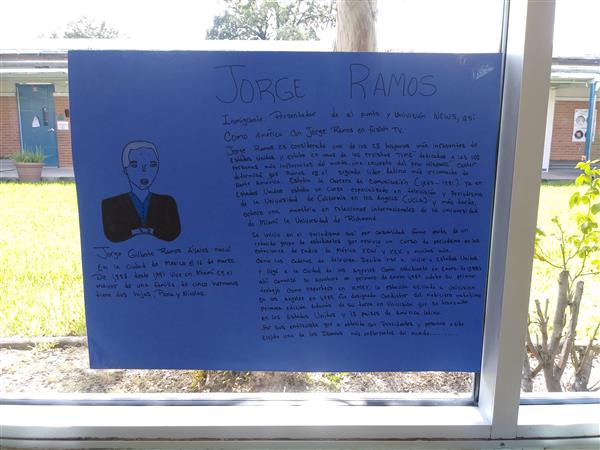 JORGE RAMOS
Inmigrante Presentador de al punto y Univisión NEWS, así
Como América Con Jorge Ramos en fusión TV.
Jorge Ramos es considerado uno de los 25 hispanos más influyentes de
Estados Unidos y estubo en una de las revistas "TIME" dedicadas a las 100
personas más influyentes del mundo una encuesta del Pew Hispanic Center
determinó que Ramos es el segundo líder latino más reconocido de
Norte América. Estudió la Carrera de Comunicación
Estados Unidos estudio un Curso especializado en televisión y Periodismo
de la Universidad de California en los Ángeles (UCLA) y más tarde,
obtuvo una maestría en relaciones internacionales de la universidad
de Miami la Universidad de Richmond.
Se inició en el periodismo casi por casualidad formó parte de un
reducido grupo de estudiantes que recibio un Curso de periodismo en las
estaciones de radio de México XEW y XEX y muchas más.
Como las Cadenas de televisión. Decidió irse a vivir a Estados Unidos
y llegó a la Ciudad de los Angeles Como estudiante en Enero de 1983
ahí Comenzó su aventura el primero de enero 1984 obtuvo su primer
trabajo Como reportero en KMEX, la estación afiliada a Univision
en los angeles en 1985 fue designado Conductor del noticiero matutino
primera edición además de su tarea en Univision que es transmitido
en los Estados Unidos y 13 países de América latina.
Por sus entrevistas que a obtenido con Presidentes y personas a sido
elejido uno de los Ispanos más influyentes del mundo.........
Jorge Gilberto Ramos Ávalos nació
En la Ciudad de México el 16 de marzo
De 1958 desde 1991 Vive en Miami es el
mayor de una familia de cinco hermanos
tiene dos hijos, Paola y Nicolas.